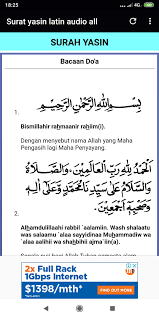 18:25
4G
Surat yasin latin audio all
SURAH YASIN
Bacaan Do'a
بِسْمِ اللهِ الرَّحْمٰنِ الرَّحِيْمِ
1.
Bismillahir raḥmaanir raḥiim(i).
Dengan menyebut nama Allah yang Maha
Pengasih lagi Maha Penyayang.
اَلْحَمْدُ لِلّٰهِ رَبِّ الْعَالَمِيْنَ، وَالصَّلَاةُ
وَالسَّلَامُ عَلٰى سَيِّدِنَا مُحَمَّدٍ وَعَلٰى اٰلِهِ
وَصَحْبِهِ اَجْمَعِيْنَ.
2.
Alḥamdulillaahi rabbil `aalamiin. Wash shalaatu
was salaamu `alaa sayyidinaa Muḥammadiw wa
`alaa aalihii wa shaḥbihii ajma`iin(a).
2x Full Rack
1Gbps Internet
$1398/mth*
FIND OUT MORE